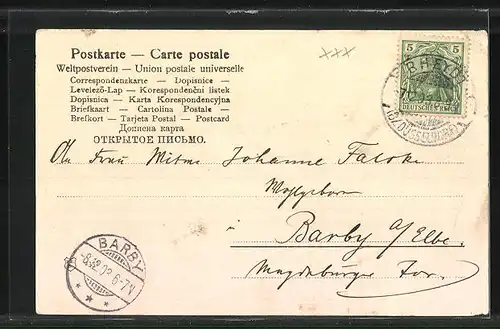 Postkarte — Carte postale
Weltpostverein — Union postale universelle
Correspondenzkarte — Dopisnice —
Levelező-Lap — Korespondenční listek
Dopisnica — Karta Korespondencyjna
Briefkaart — Cartolina Postale —
Brefkort — Tarjeta Postal — Postcard
Дописна карта
ОТКРЫТОЕ ПИСЬМО.
xxx
5 5
DEUTSCHES REICH
Frau Witwe Johanne
Wohlgeboren
in Barby a/Elbe.
Magdeburger
BARBY